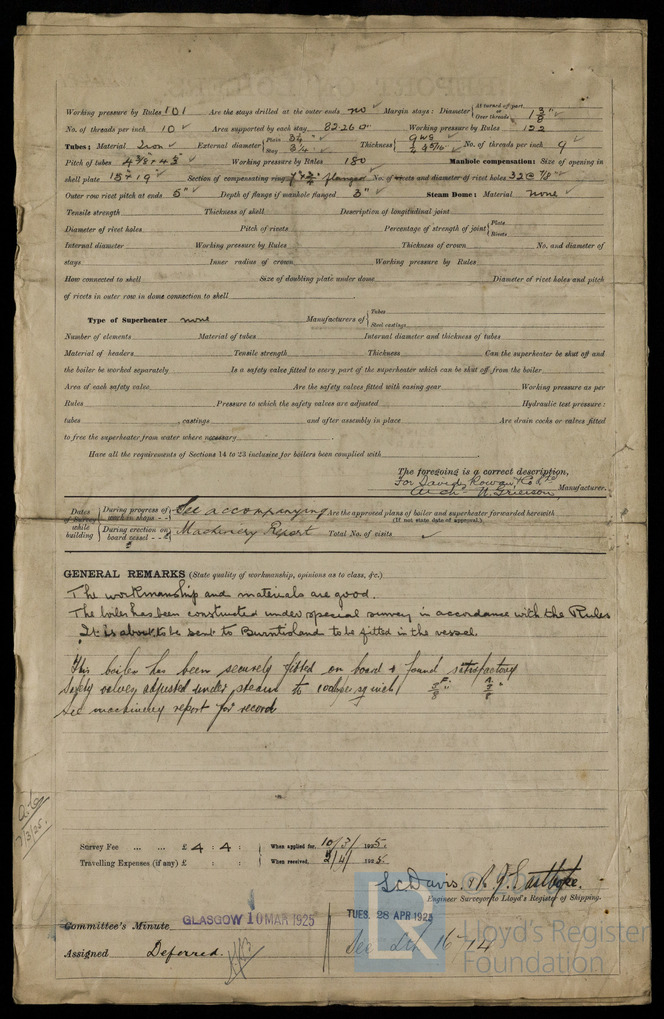 Working pressure by Rules 101 Are the stays drilled at the outer ends no Margin stays: Diameter { At turned off part, or Over threads 1 3/8"
No. of threads per inch 10 Area supported by each stay 82.26 Working pressure by Rules 122
Tubes: Material Iron External diameter { Plain 3 1/4" Stay 3 1/4" Thickness { 9 WG 1/4 & 5/16" No. of threads per inch 9
Pitch of tubes 4 3/8 × 4 Working pressure by Rules 180 Manhole compensation: Size of opening in
shell plate 15 × 19" Section of compensating ring flanged No. of rivets and diameter of rivet holes 32 @ 7/8"
Outer row rivet pitch at ends 5" Depth of flange if manhole flanged 3" Steam Dome: Material none
Tensile strength Thickness of shell Description of longitudinal joint
Diameter of rivet holes Pitch of rivets Percentage of strength of joint { Plate Rivets
Internal diameter Working pressure by Rules Thickness of crown No. and diameter of
stays Inner radius of crown Working pressure by Rules
How connected to shell Size of doubling plate under dome Diameter of rivet holes and pitch
of rivets in outer row in dome connection to shell
Type of Superheater none Manufacturers of { Tubes Steel castings
Number of elements Material of tubes Internal diameter and thickness of tubes
Material of headers Tensile strength Thickness Can the superheater be shut off and
the boiler be worked separately Is a safety valve fitted to every part of the superheater which can be shut off from the boiler
Area of each safety valve Are the safety valves fitted with easing gear Working pressure as per
Rules Pressure to which the safety valves are adjusted Hydraulic test pressure:
tubes , castings and after assembly in place Are drain cocks or valves fitted
to free the superheater from water where necessary
Have all the requirements of Sections 14 to 23 inclusive for boilers been complied with
The foregoing is a correct description,
For David Rowan & Co Ltd
Archd W. Grierson Manufacturer.
Dates of Survey while building { During progress of work in shops - - See accompanying Are the approved plans of boiler and superheater forwarded herewith
(If not state date of approval.)
During erection on board vessel - - - Machinery Report Total No. of visits
GENERAL REMARKS (State quality of workmanship, opinions as to class, &c.)
The workmanship and materials are good.
The boiler has been constructed under special survey in accordance with the Rules
It is about to be sent to Burntisland to be fitted in the vessel.
This boiler has been securely fitted on board & found satisfactory
Safety valves adjusted under steam to 100 lbs per sq inch F 3/8" A 3/8"
See machinery report for record
7/3/25.
Survey Fee ... ... £ 4 : 4 : When applied for, 10/3/1925.
Travelling Expenses (if any) £ : : When received, 2/4/1925.
L C Davis. & R. J. Eastlake.
Engineer Surveyor to Lloyd's Register of Shipping.
Committee's Minute GLASGOW 10 MAR 1925 TUES. 28 APR 1925
Assigned Deferred.
Lloyd's Register
Foundation